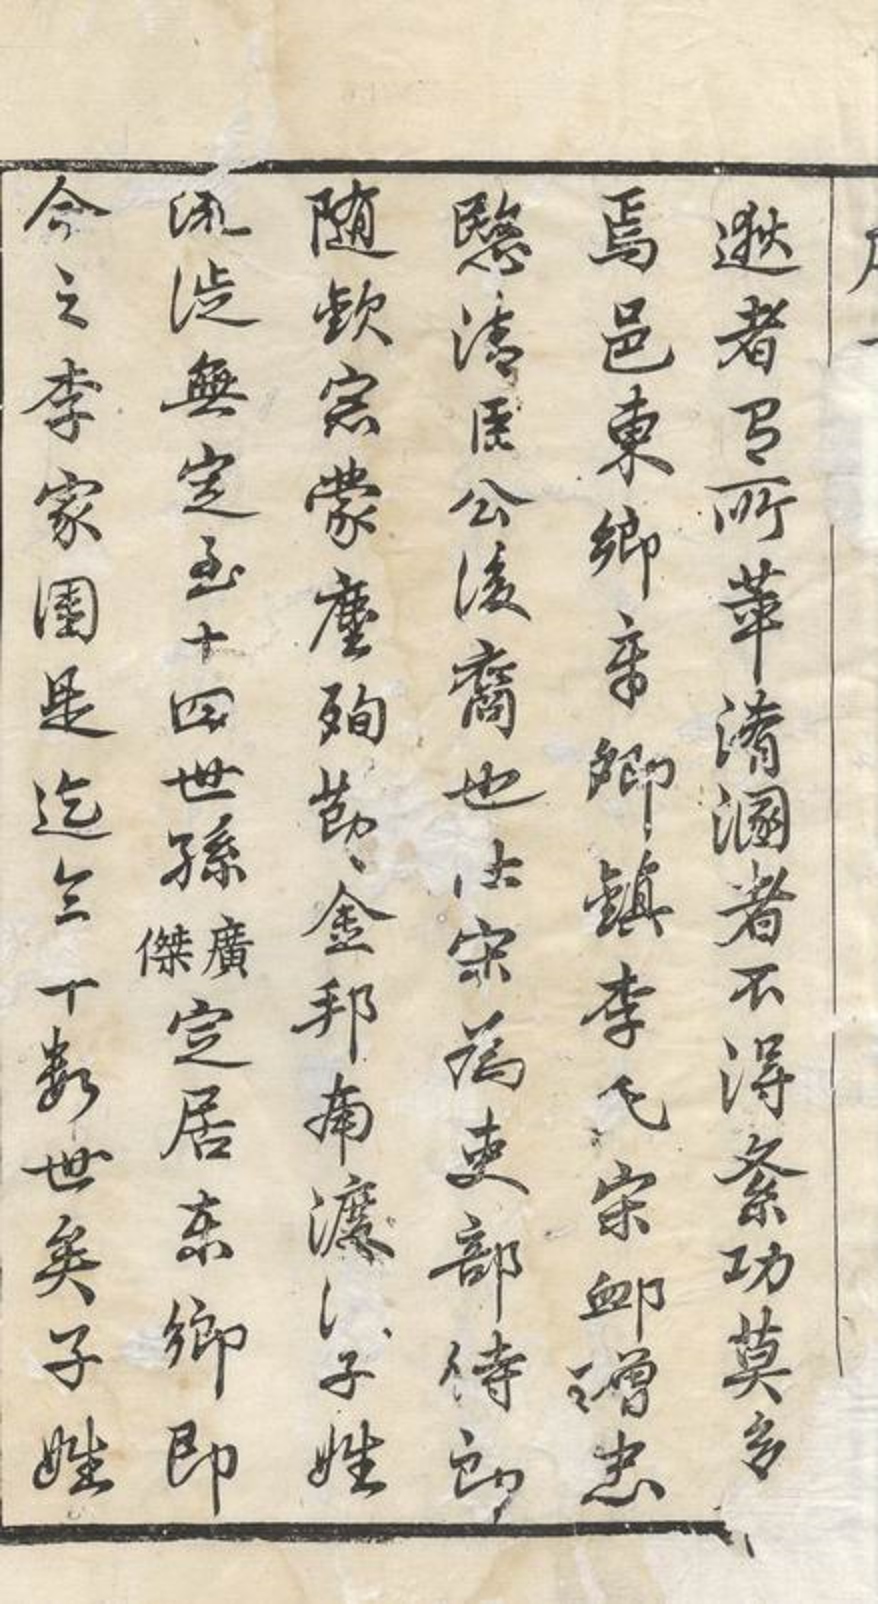 逖者有所萃淆溷者不得紊功莫多
焉邑東鄉辛卿鎮李氏宋卹贈忠
愍清臣公後裔也仕宋為吏部侍郎
隨欽宗蒙塵殉節金邦南渡後子姓
流徙無定至十四世孫廣傑定居東鄉即
今之李家圍是迄今十數世矣子姓